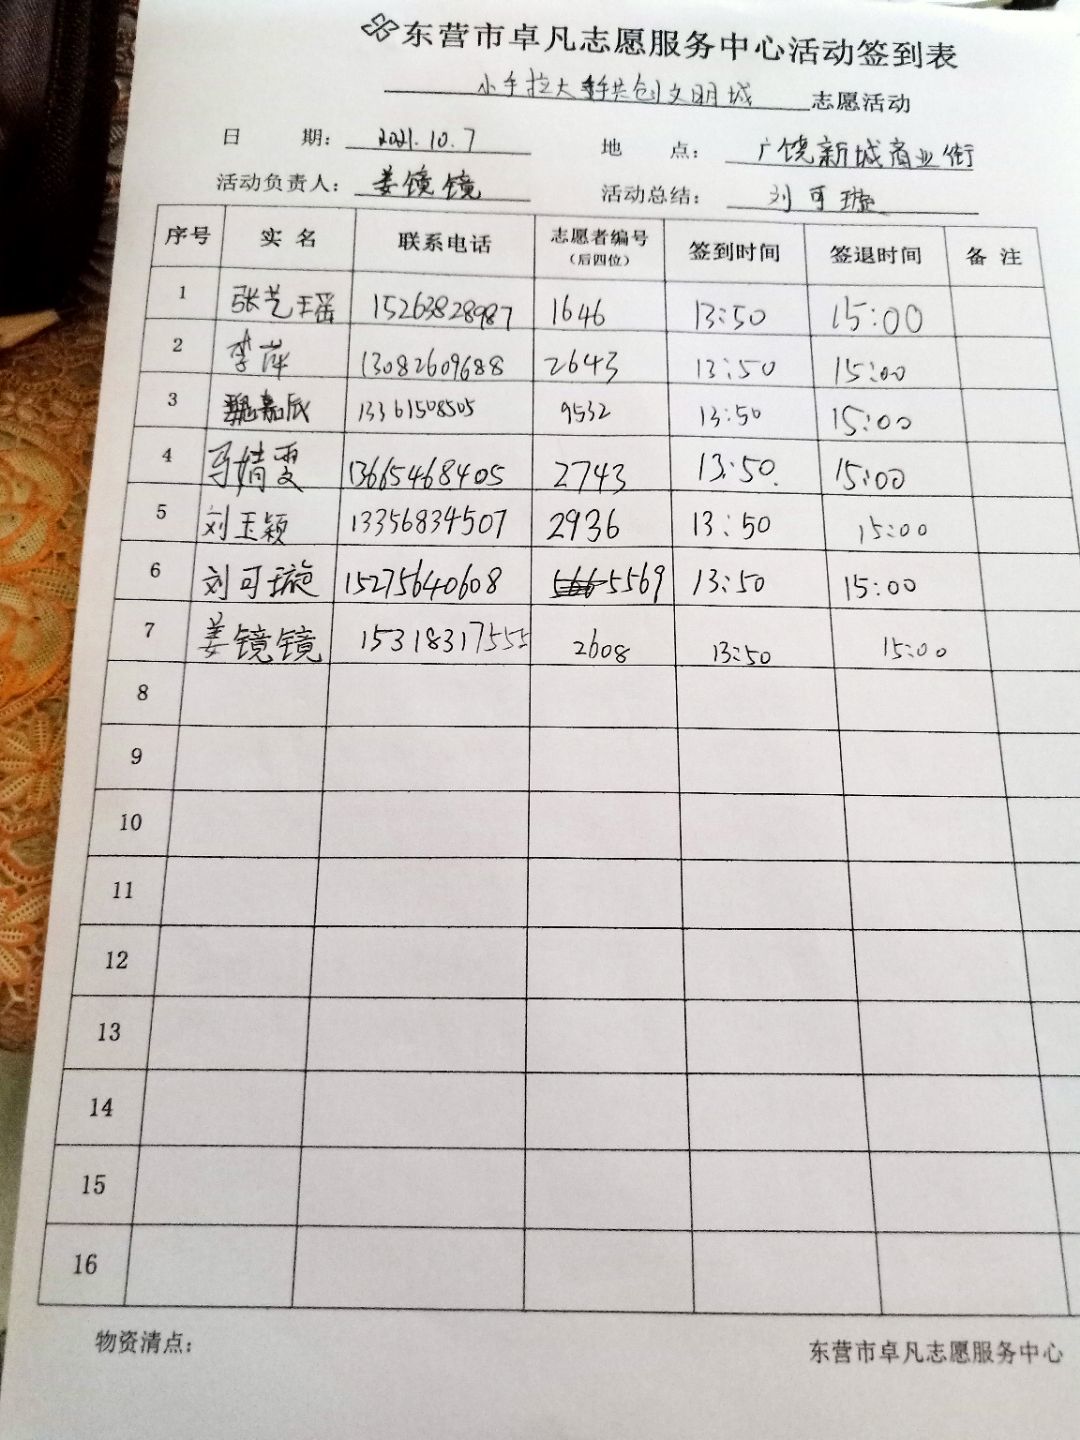 东营市卓凡志愿服务中心活动签到表
小手拉大手共创文明城 志愿活动
日 期：2021.10.7 地 点：广饶新城商业街
活动负责人：姜镜镜 活动总结：刘可璇
序号 实 名 联系电话 志愿者编号（后四位） 签到时间 签退时间 备 注
1 张艺瑶 15263828987 1646 13:50 15:00
2 李萍 13082609688 2643 13:50 15:00
3 魏嘉辰 13361508505 9532 13:50 15:00
4 马婧雯 13665468405 2743 13:50 15:00
5 刘玉颖 13356834507 2936 13:50 15:00
6 刘可璇 15275640608 5569 13:50 15:00
7 姜镜镜 15318317555 2608 13:50 15:00
8
9
10
11
12
13
14
15
16
物资清点： 东营市卓凡志愿服务中心